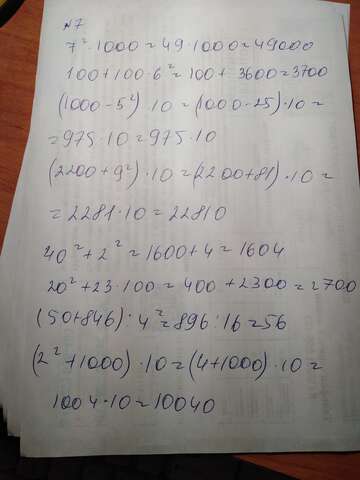 №7
7² · 1000 = 49 · 1000 = 49000
100 + 100 · 6² = 100 + 3600 = 3700
(1000 - 5²) · 10 = (1000 - 25) · 10 =
= 975 · 10 = 975 · 10
(2200 + 9²) · 10 = (2200 + 81) · 10 =
= 2281 · 10 = 22810
40² + 2² = 1600 + 4 = 1604
20² + 23 · 100 = 400 + 2300 = 2700
(50 + 846) : 4² = 896 : 16 = 56
(2² + 1000) · 10 = (4 + 1000) · 10 =
1004 · 10 = 10040